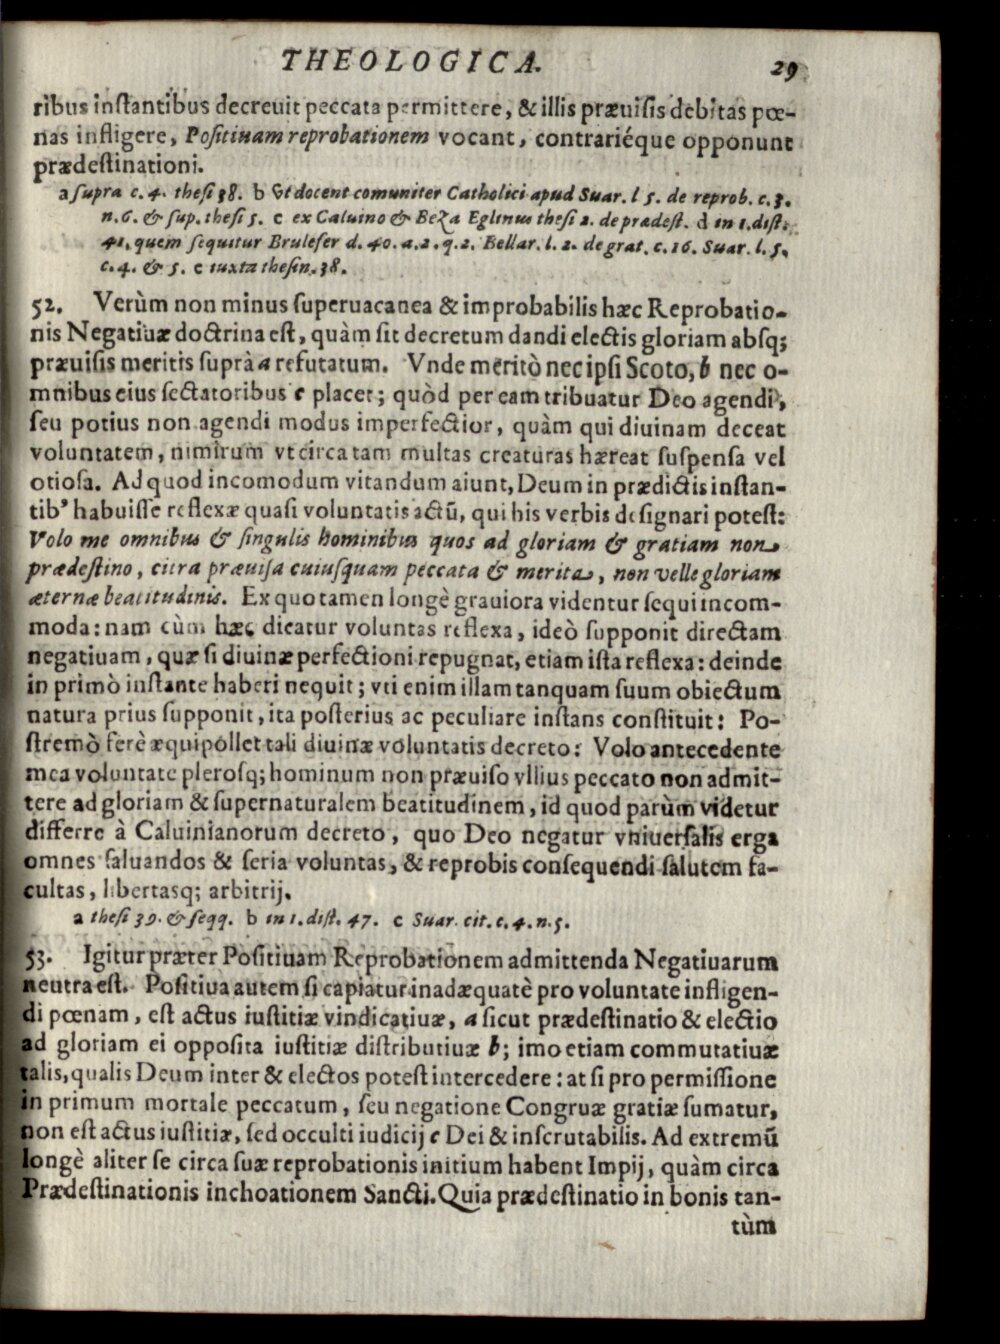 THEOLOGICA. 29
ribus inſtantibus decreuit peccata permittere, & illis præuiſis debitas pœ-
nas infligere, Poſitiuam reprobationem vocant, contrariéque opponunt
prædeſtinationi.
a ſupra c. 4. theſi 38. b Vt docent communiter Catholici apud Suar. l 5. de reprob. c. 3.
n. 6. & ſup. theſi 5. c ex Caluino & Beza Eglinus theſi 2. de prædeſt. d in 1. diſt.
41, quem ſequitur Brulefer d. 40. a. 2. q. 2. Bellar. l. 2. de grat. c. 16. Suar. l. 5,
c. 4. & 5. e iuxta theſin. 38.
52. Verùm non minus ſuperuacanea & improbabilis hæc Reprobatio-
nis Negatiuæ doctrina eſt, quàm ſit decretum dandi electis gloriam abſq;
præuiſis meritis ſuprà a refutatum. Vnde meritò nec ipſi Scoto, b nec o-
mnibus eius ſectatoribus c placet; quòd per eam tribuatur Deo agendi,
ſeu potius non agendi modus imperfectior, quàm qui diuinam deceat
voluntatem, nimirum vt circa tam multas creaturas hæreat ſuſpenſa vel
otioſa. Ad quod incomodum vitandum aiunt, Deum in prædictis inſtan-
tib' habuiſſe reflexæ quaſi voluntatis actũ, qui his verbis deſignari poteſt:
Volo me omnibus & ſingulis hominibus quos ad gloriam & gratiam non
prædeſtino, citra præuiſa cuiuſquam peccata & merita, non velle gloriam
æternæ beatitudinis. Ex quo tamen longè grauiora videntur ſequi incom-
moda: nam cùm hæc dicatur voluntas reflexa, ideò ſupponit directam
negatiuam, quæ ſi diuinæ perfectioni repugnat, etiam iſta reflexa: deinde
in primò inſtante haberi nequit; vti enim illam tanquam ſuum obiectum
natura prius ſupponit, ita poſterius ac peculiare inſtans conſtituit: Po-
ſtremò ferè æquipollet tali diuinæ voluntatis decreto: Volo antecedente
mea voluntate pleroſq; hominum non præuiſo vllius peccato non admit-
tere ad gloriam & ſupernaturalem beatitudinem, id quod parùm videtur
differre à Caluinianorum decreto, quo Deo negatur vniuerſalis erga
omnes ſaluandos & ſeria voluntas, & reprobis conſequendi ſalutem fa-
cultas, libertasq; arbitrij.
a theſi 39. & ſeqq. b in 1. diſt. 47. c Suar. cit. c. 4. n. 5.
53. Igitur præter Poſitiuam Reprobationem admittenda Negatiuarum
neutra eſt. Poſitiua autem ſi capiatur inadæquatè pro voluntate infligen-
di pœnam, eſt actus iuſtitiæ vindicatiuæ, a ſicut prædeſtinatio & electio
ad gloriam ei oppoſita iuſtitiæ diſtributiuæ b; imo etiam commutatiuæ
talis, qualis Deum inter & electos poteſt intercedere: at ſi pro permiſſione
in primum mortale peccatum, ſeu negatione Congruæ gratiæ ſumatur,
non eſt actus iuſtitiæ, ſed occulti iudicij c Dei & inſcrutabilis. Ad extremũ
longè aliter ſe circa ſuæ reprobationis initium habent Impij, quàm circa
Prædeſtinationis inchoationem Sancti. Quia prædeſtinatio in bonis tan-
tùm